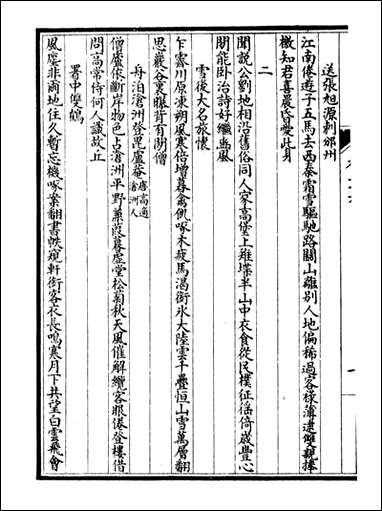 送張旭源刺邠州
江南倦遊子五馬去西秦霜雪驅馳路關山離別人地偏稀過客祿薄逮雙親捧
檄知君喜晨昏愛此身
二
聞說公劉地相沿舊俗同人家高堡上雉堞半山中衣食從民樸征徭倚歲豐心
閒能卧治詩好繼豳風
雪後大名旅懷
乍霽川原凍朔風寒倍增暮禽飢啄木疲馬渴銜氷大陸雲千疊恒山雪萬層翻
思巖谷裏曝背有閒僧
舟泊滄洲登毘盧菴唐高適滄洲人
僧盧依斷岸物色占滄洲平野蒹葭暮虛堂松菊秋天風催解纜客眼倦登樓借
問高常侍何人識故丘
署中雙鶴
風塵非爾地住久暫忘機啄案翻書帙窺軒銜客衣長鳴寒月下共望白雲飛會